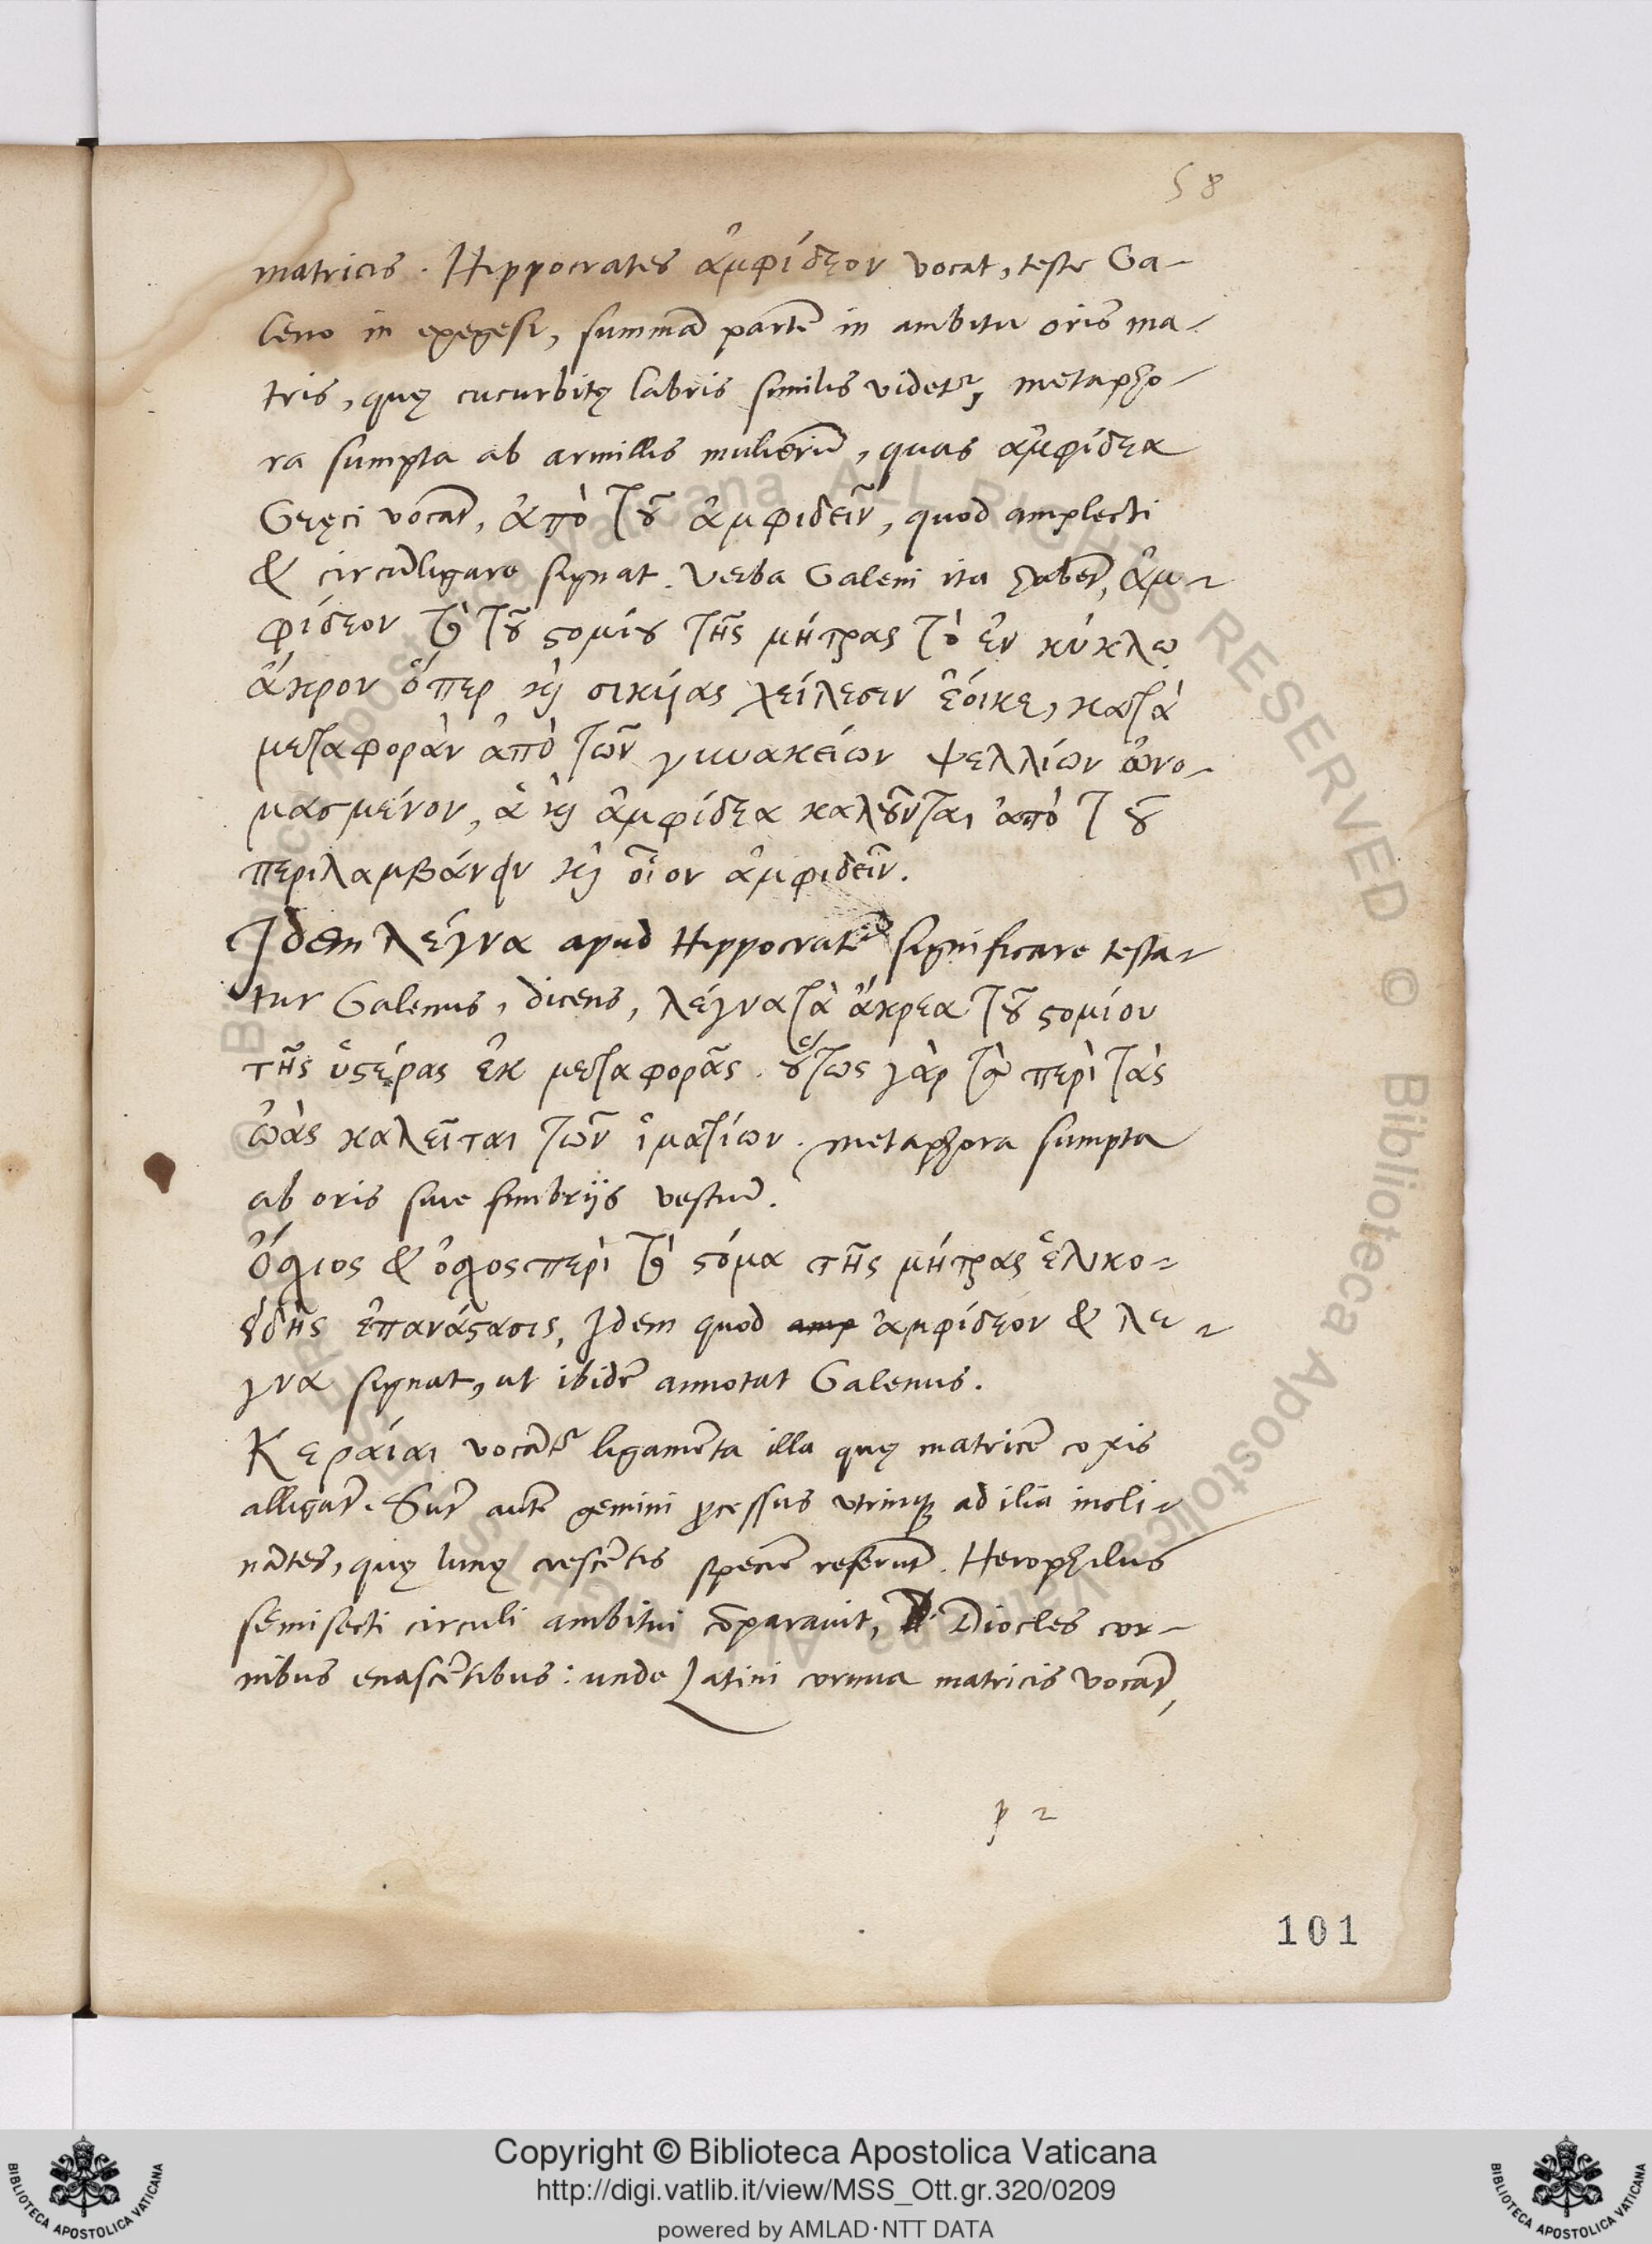 58
matricis. Hippocrates ἀμφίδεον vocat, teste Ga-
leno in exegesi, summā partē in ambitu oris ma-
tris, quę cucurbitę labris similis videtʳ, metapho-
ra sumpta ab armillis mulierū, quas ἀμφίδεα
Gręci vocāt, ἀπὸ τȣ͂ ἀμφιδεῖν, quod amplecti
& circūligare signat. Verba Galeni ita habēt, ἀμ-
φίδεον τὸ τȣ͂ ϛομίȣ τῆς μήτρας τὸ ἐν κύκλῳ
ἄκρον ὅπερ καὶ σικύας χείλεσιν ἔοικε, κατὰ
μεταφορὰν ἀπὸ τῶν γυναικείων ψελλίων ὠνο-
μασμένον, ἃ καὶ ἀμφίδεα καλȣ͂νται ἀπὸ τȣ͂
περιλαμβάνειν καὶ οἷον ἀμφιδεῖν.
Idem λέγνα apud Hippocratē significare testa-
tur Galenus, dicens, λέγνα τὰ ἄκρεα τȣ͂ ϛομίου
τῆς ὑϛέρας ἐκ μεταφορᾶς. ȣ̔́τως γὰρ τὰ περὶ τὰς
ὠὰς καλεῖται τῶν ἱματίων. metaphora sumpta
ab oris siue fimbrijs vestiū.
& περὶ τὸ ϛόμα τῆς μήτρας ἑλικο-
ἐπανάϛασις, Idem quod amp ἀμφίδεον & λε-
γνα signat, ut ibidē annotat Galenus.
Κεραίαι vocātʳ ligamēta illa quę matricē coxis
alligāt. Sūt autē gemini p̄cessus vtrinqꝫ ad ilia incli-
nātes, quę lunę crescētis speciē referūt. Herophilus
semisecti circuli ambitui cōparauit, Diocles cor-
nibus enascētibus: unde Latini cornua matricis vocāt,
p 2
101
Copyright © Biblioteca Apostolica Vaticana
http://digi.vatlib.it/view/MSS_Ott.gr.320/0209
powered by AMLAD·NTT DATA
BIBLIOTECA APOSTOLICA VATICANA
BIBLIOTECA APOSTOLICA VATICANA